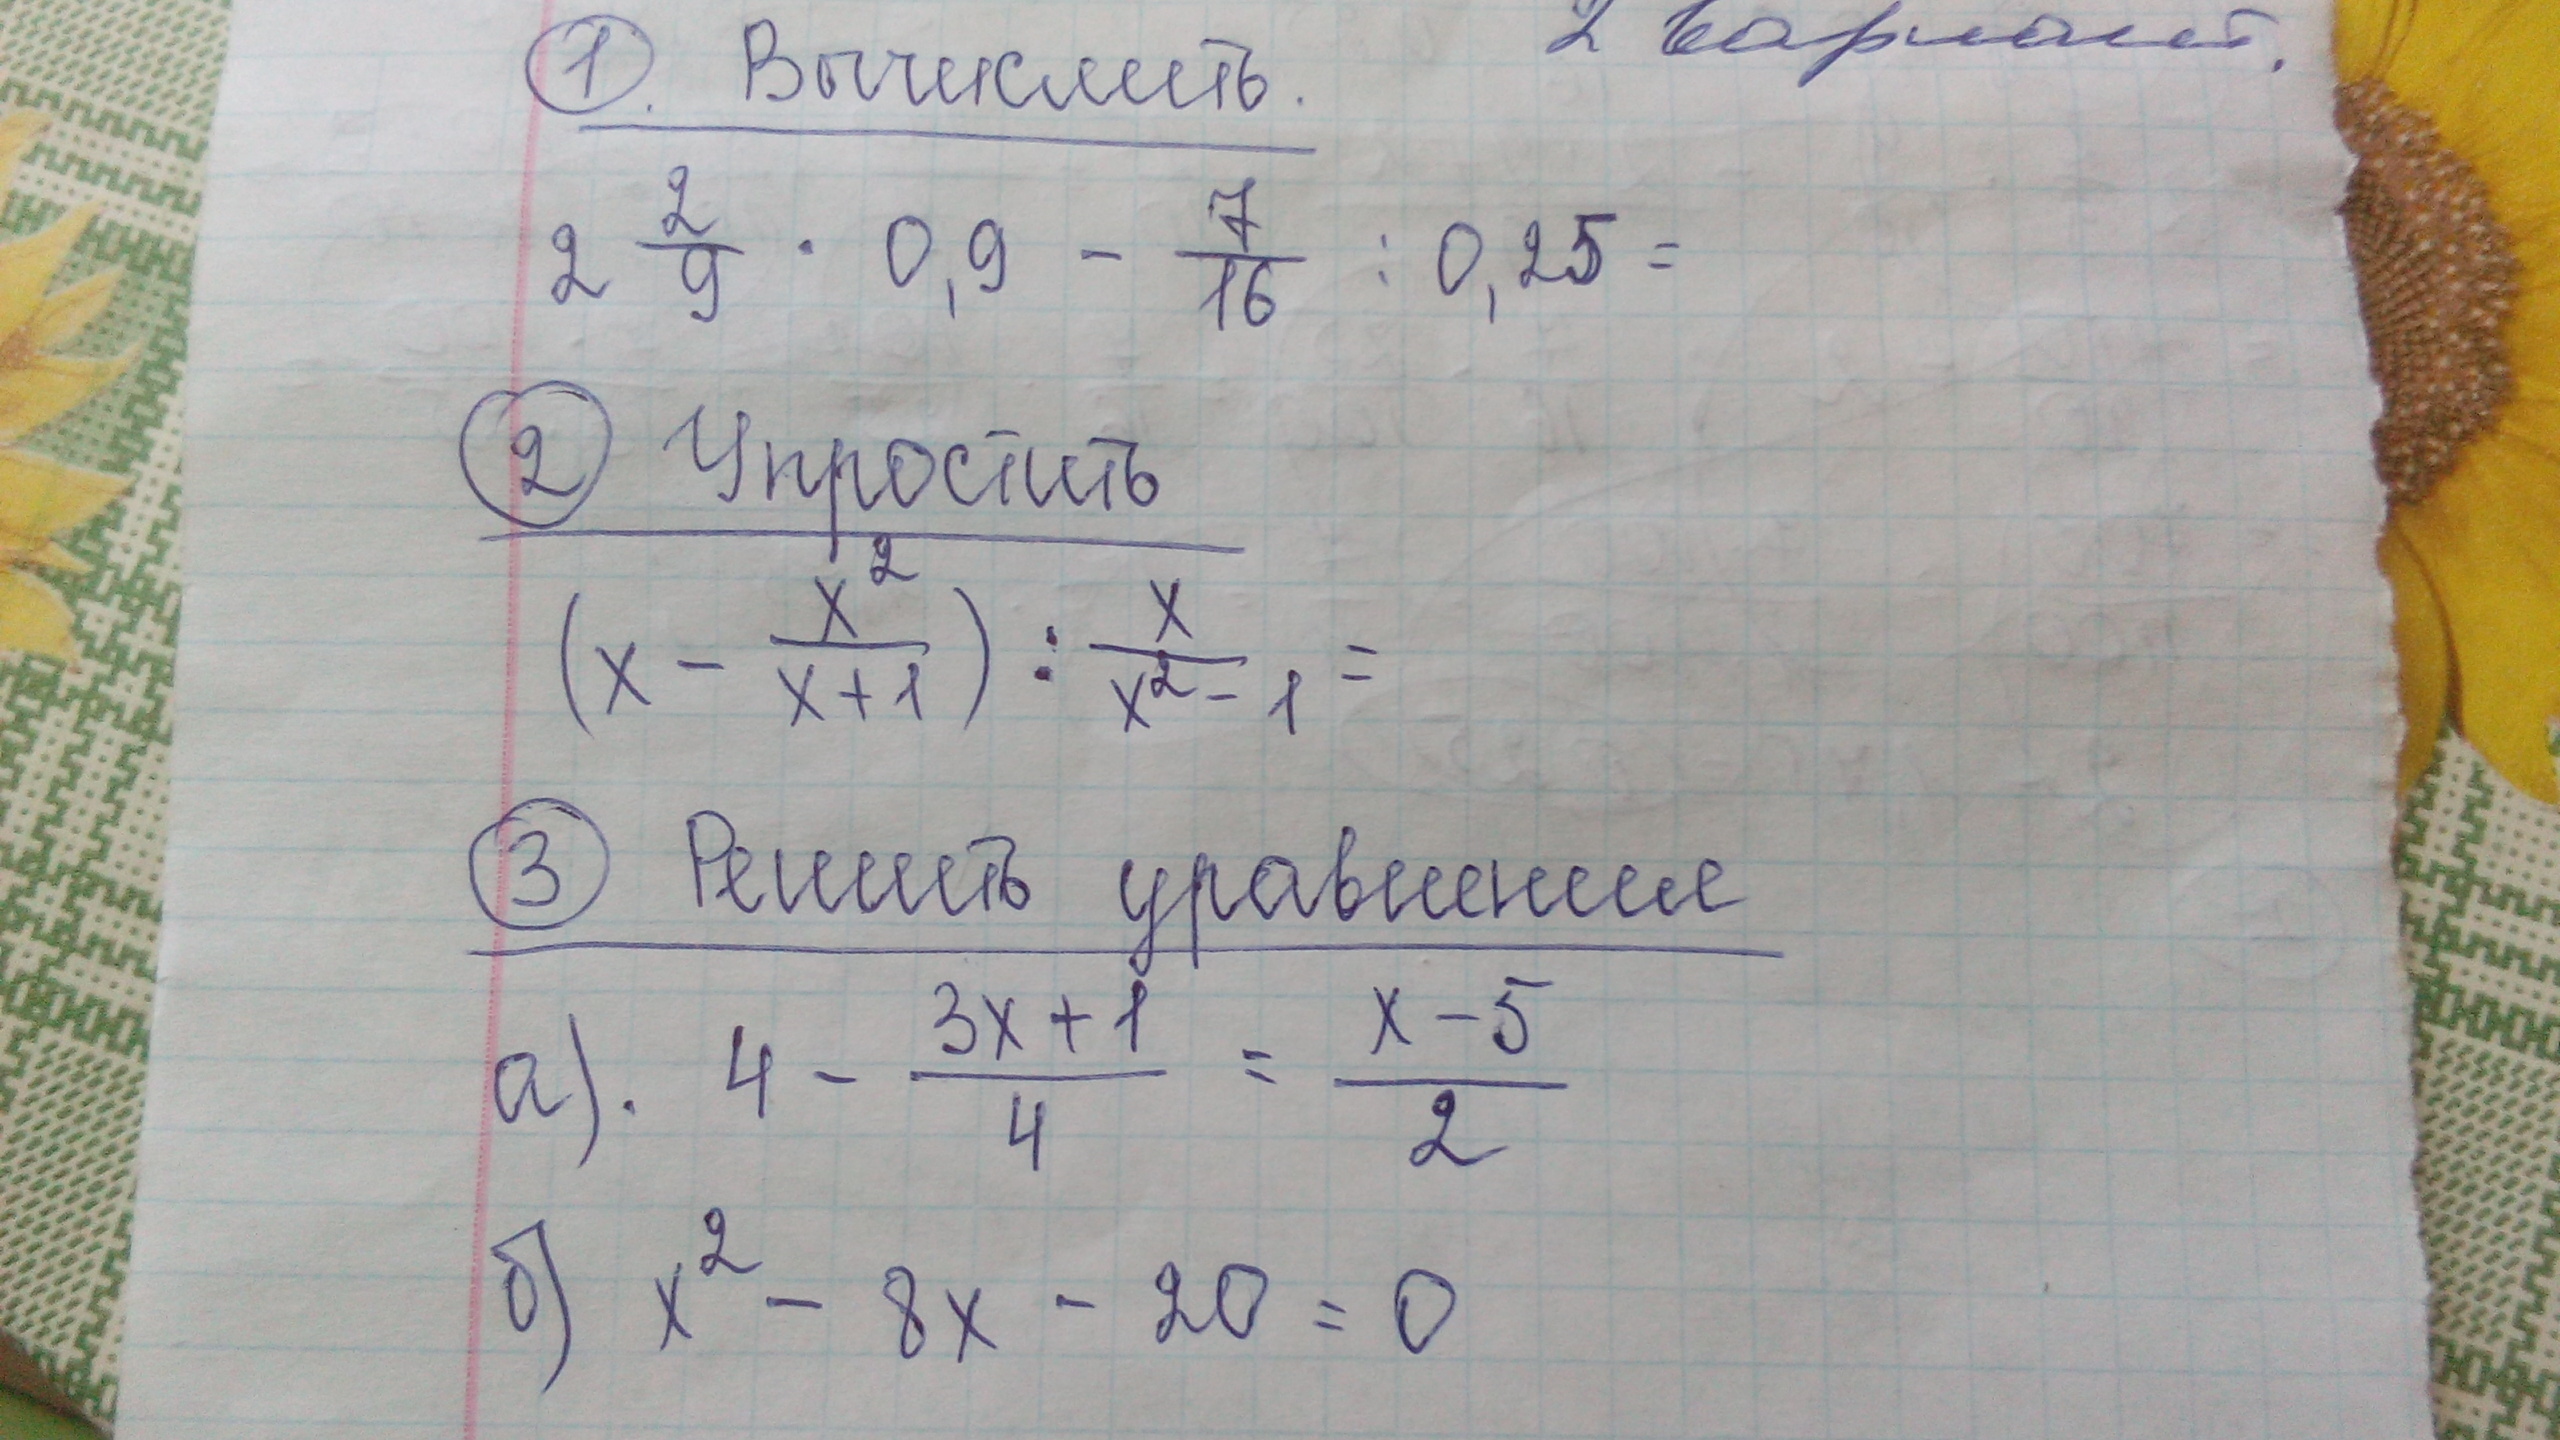 2 вариант.
1. Вычислить.
2 2/9 · 0,9 - 7/16 : 0,25 =
2 Упростить
(x - x²/(x+1)) : x/(x² - 1) =
3 Решить уравнение
а). 4 - (3x+1)/4 = (x-5)/2
б) x² - 8x - 20 = 0